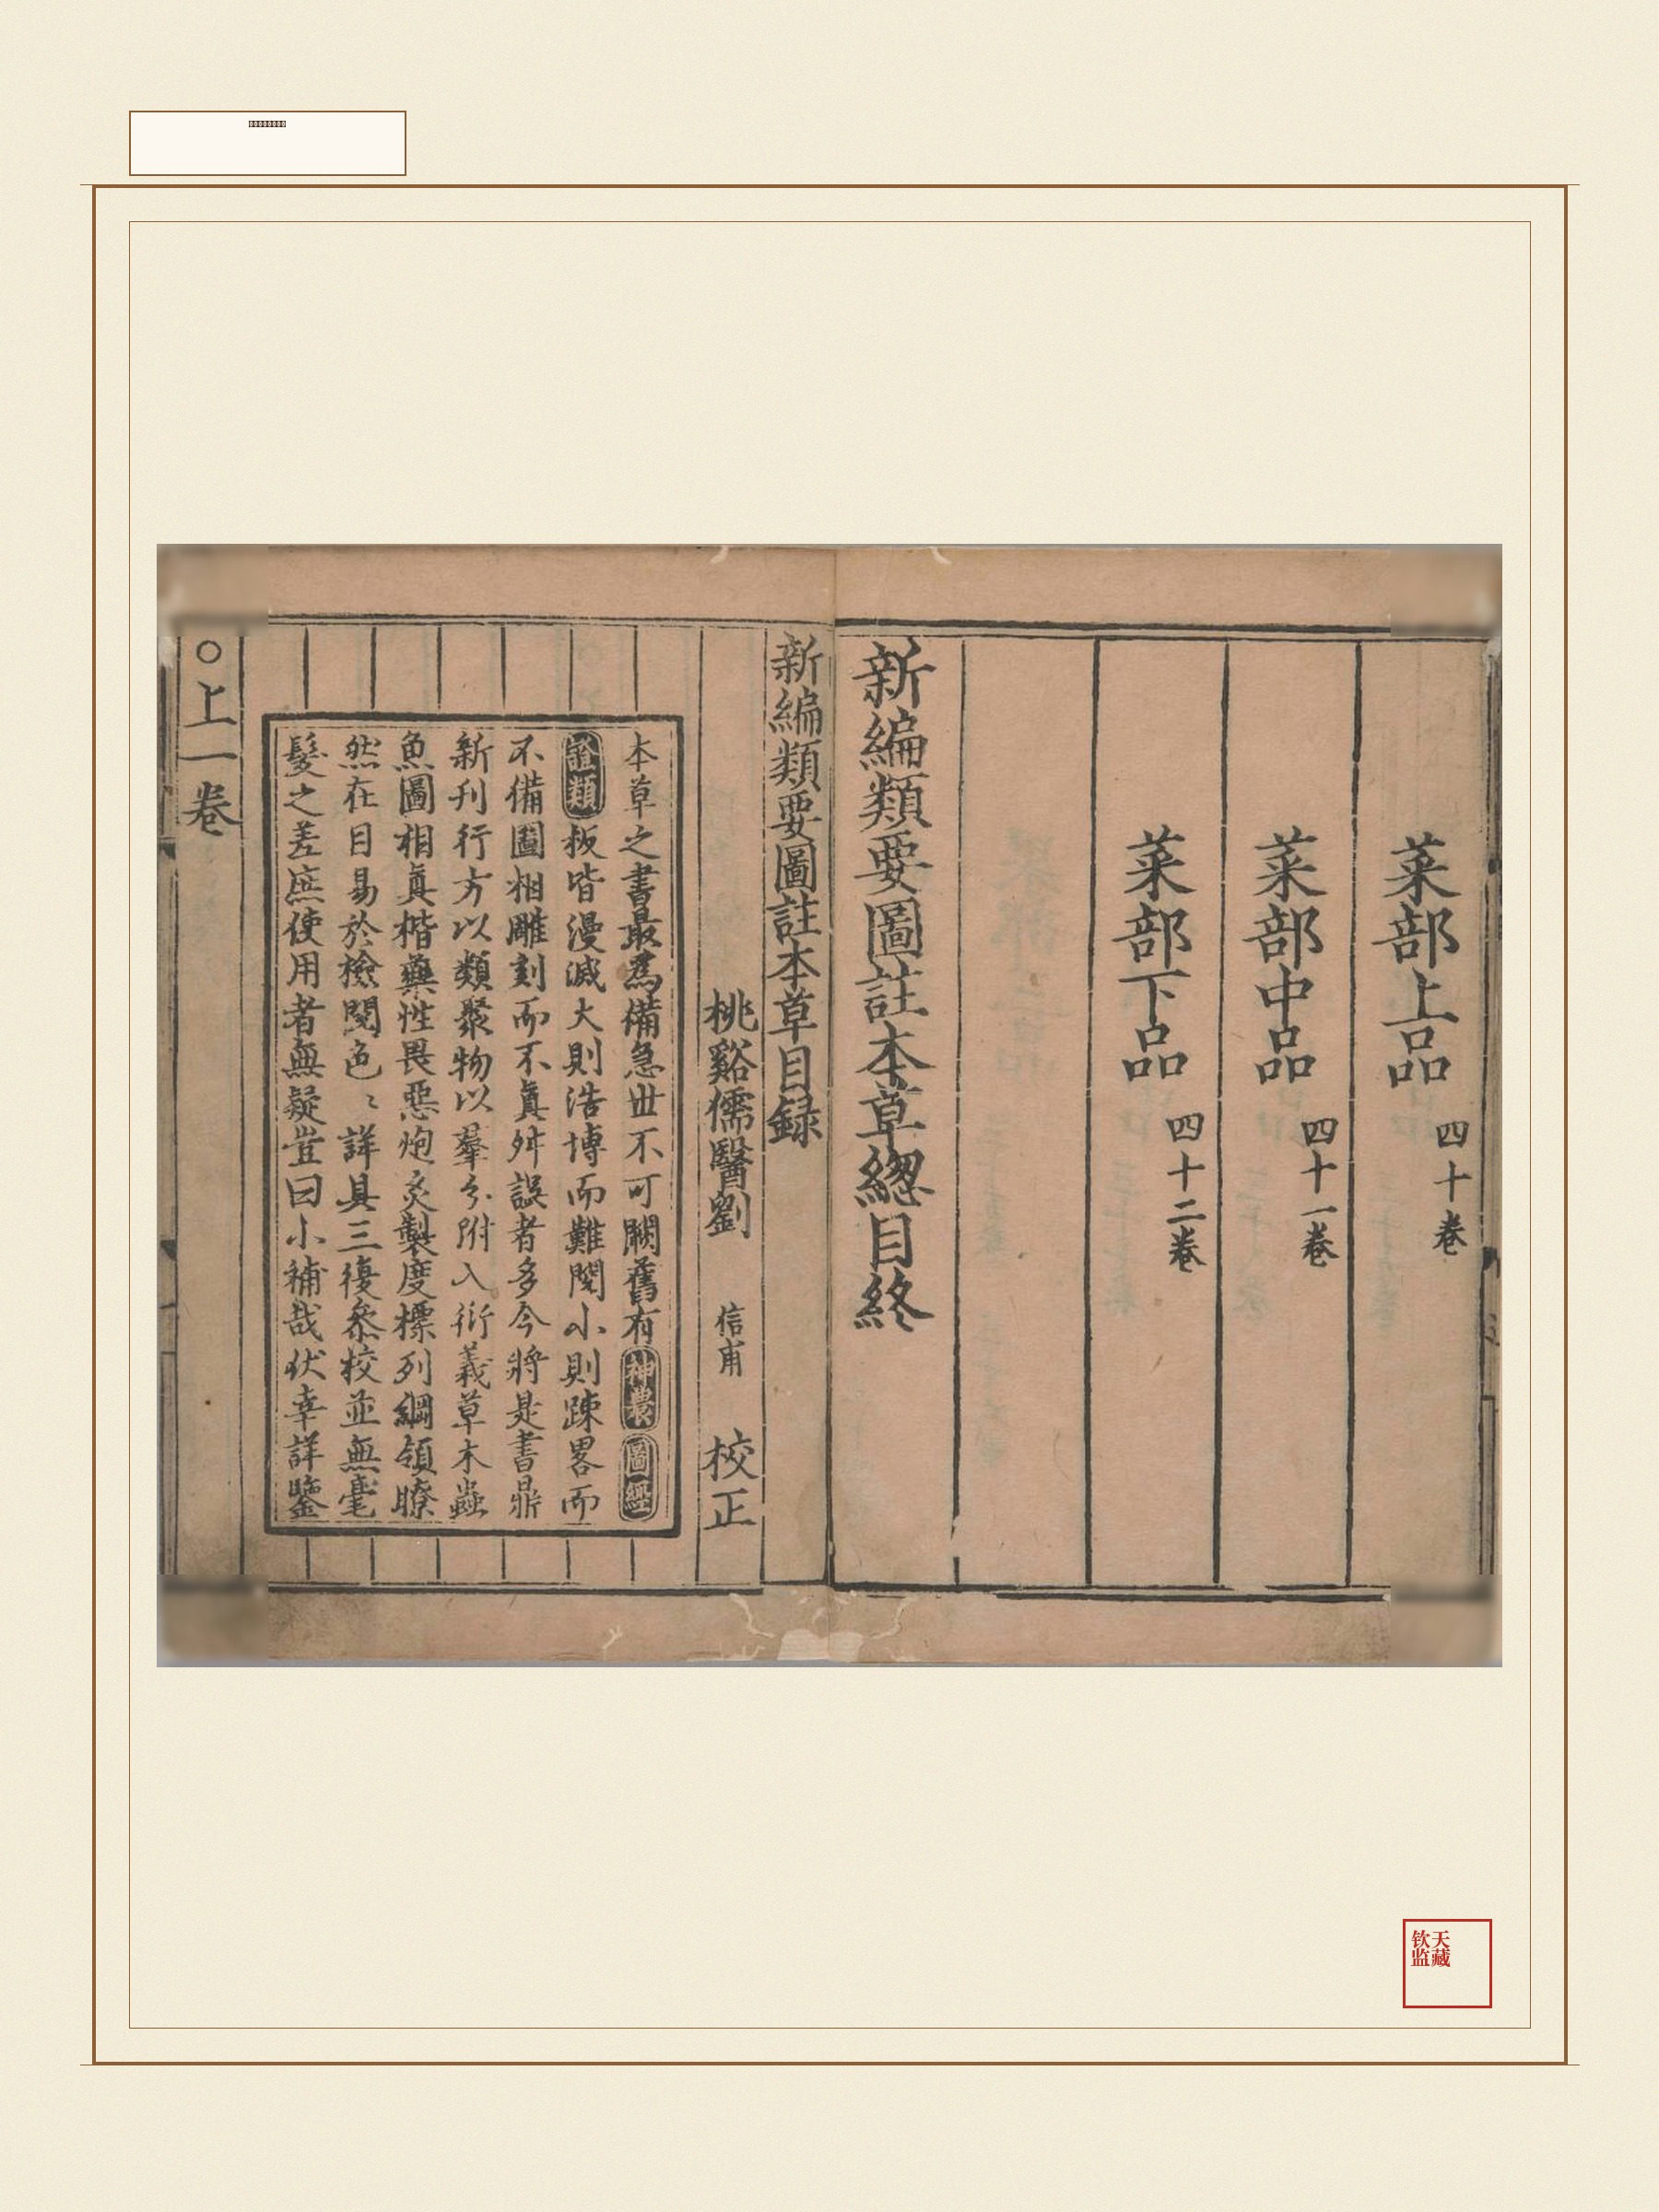 菜部上品 四十卷
菜部中品 四十一卷
菜部下品 四十二卷
新編類要圖註本草緫目終
新編類要圖註本草目録
桃谿儒醫劉 信甫 校正
本草之書最爲備急世不可闕舊有神農圖經
證類板皆漫滅大則浩博而難閱小則踈畧而
不備圖相雕刻而不真舛誤者多今將是書鼎
新刊行方以類聚物以羣分附入衍義草木蟲
魚圖相真楷藥性畏惡炮炙製度標列綱領瞭
然在目易於檢閱色〻詳具三復叅校並無毫
髮之差庶使用者無疑豈曰小補哉伏幸詳鑒
○上一卷
钦天
监藏